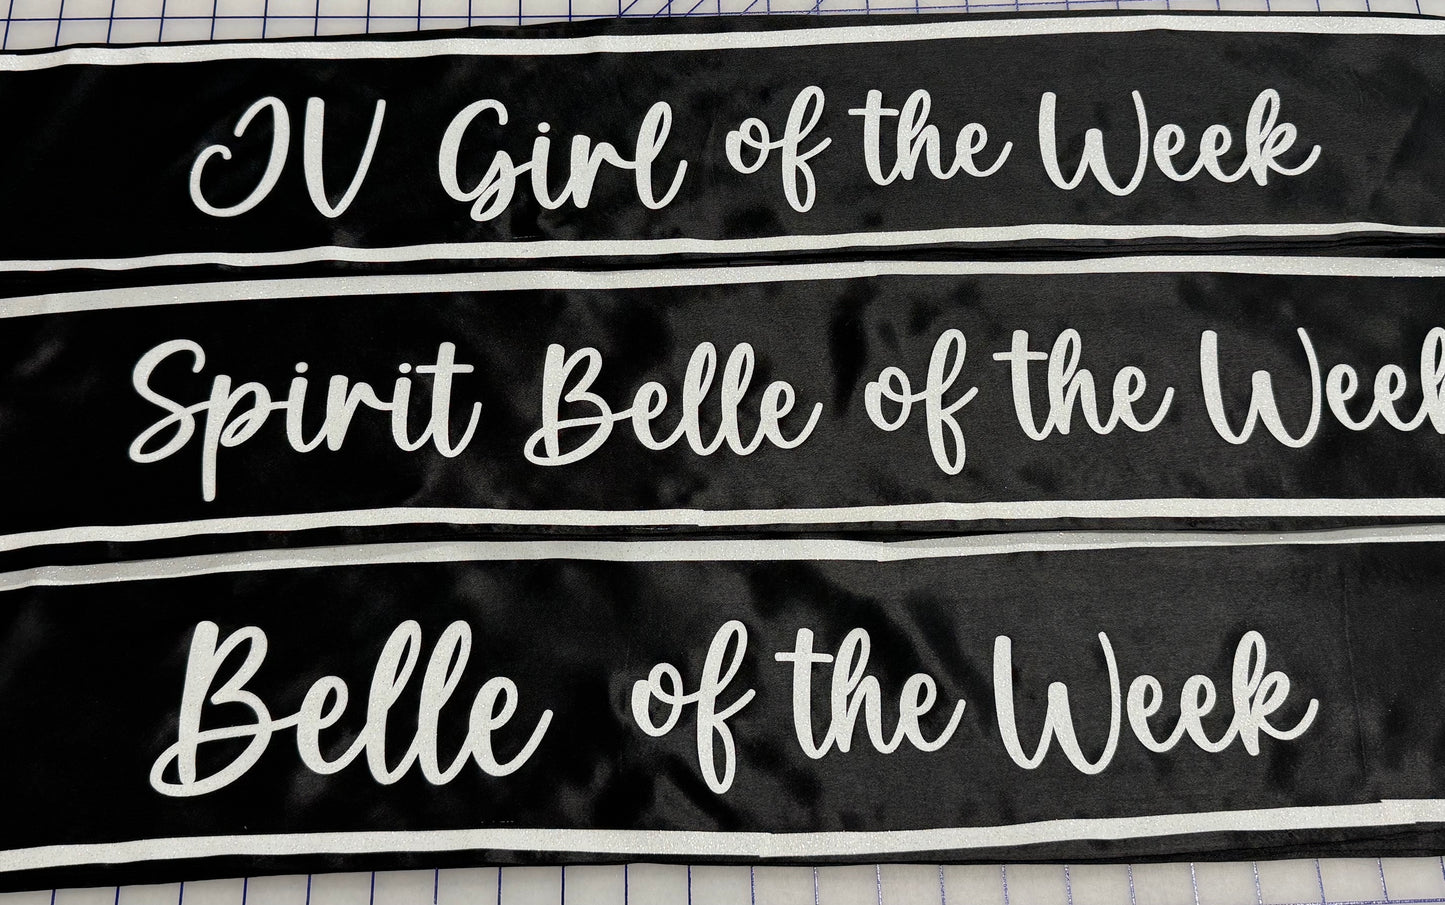 JV Girl of the Week
Spirit Belle of the Week
Belle of the Week